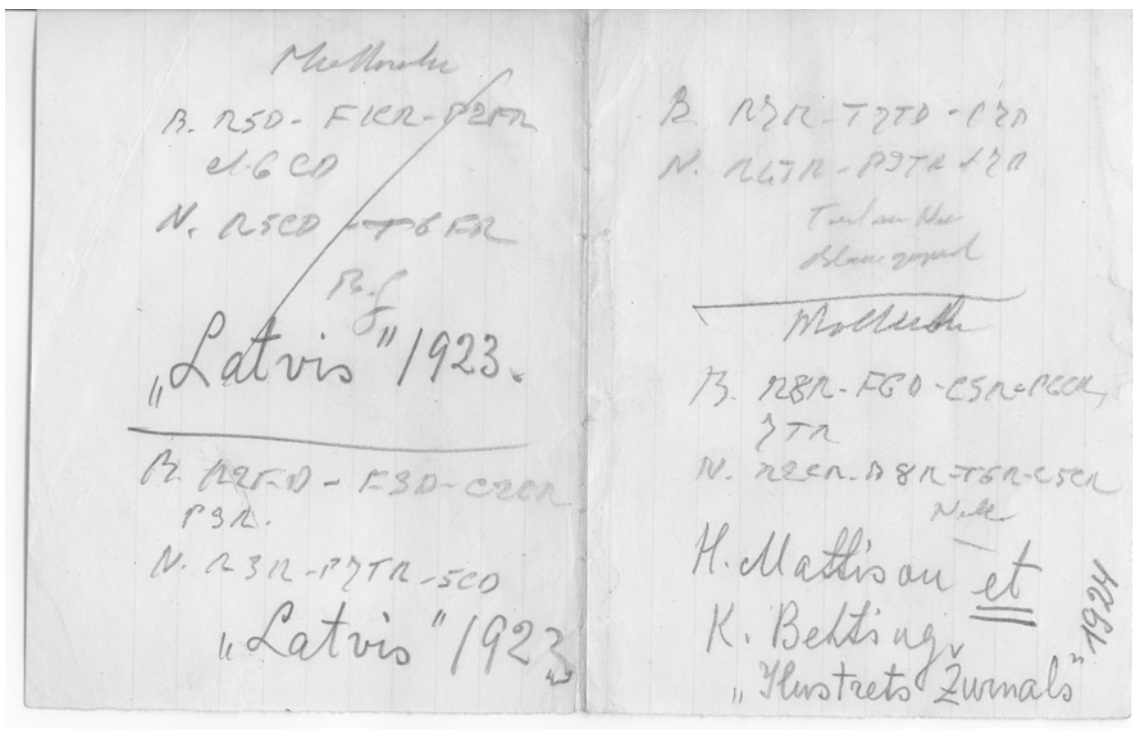 B. R5D - F1CR - P2FR
et 6CD
N. R5CD - T6FR
„Latvis" 1923.
B. R2FD - F3D - C2CR
P3R.
N. R3R - P7TR - 5CD
„Latvis" 1923
B. R7R - T7TD - P7D
N. R4TR - P3TR
B. R8R - F6D - C5R - P6CR,
7TR
N. R2CR - D8R - T6R - C5CR
Nulle
H. Mattison et
K. Behting.
„Ilustrets Žurnals" 1924